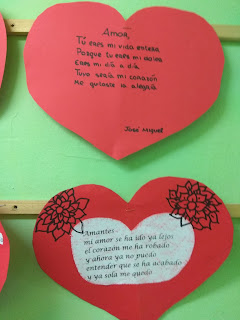 Amor,
Tú eres mi vida entera
Porque tu eres mi
Eres mi día a día
Tuyo sería mi corazón
me quitaste la alegría
José Miguel
Amantes
mi amor se ha ido ya lejos
el corazón me ha robado
y ahora ya no puedo
entender que se ha acabado
y ya sola me quedo.